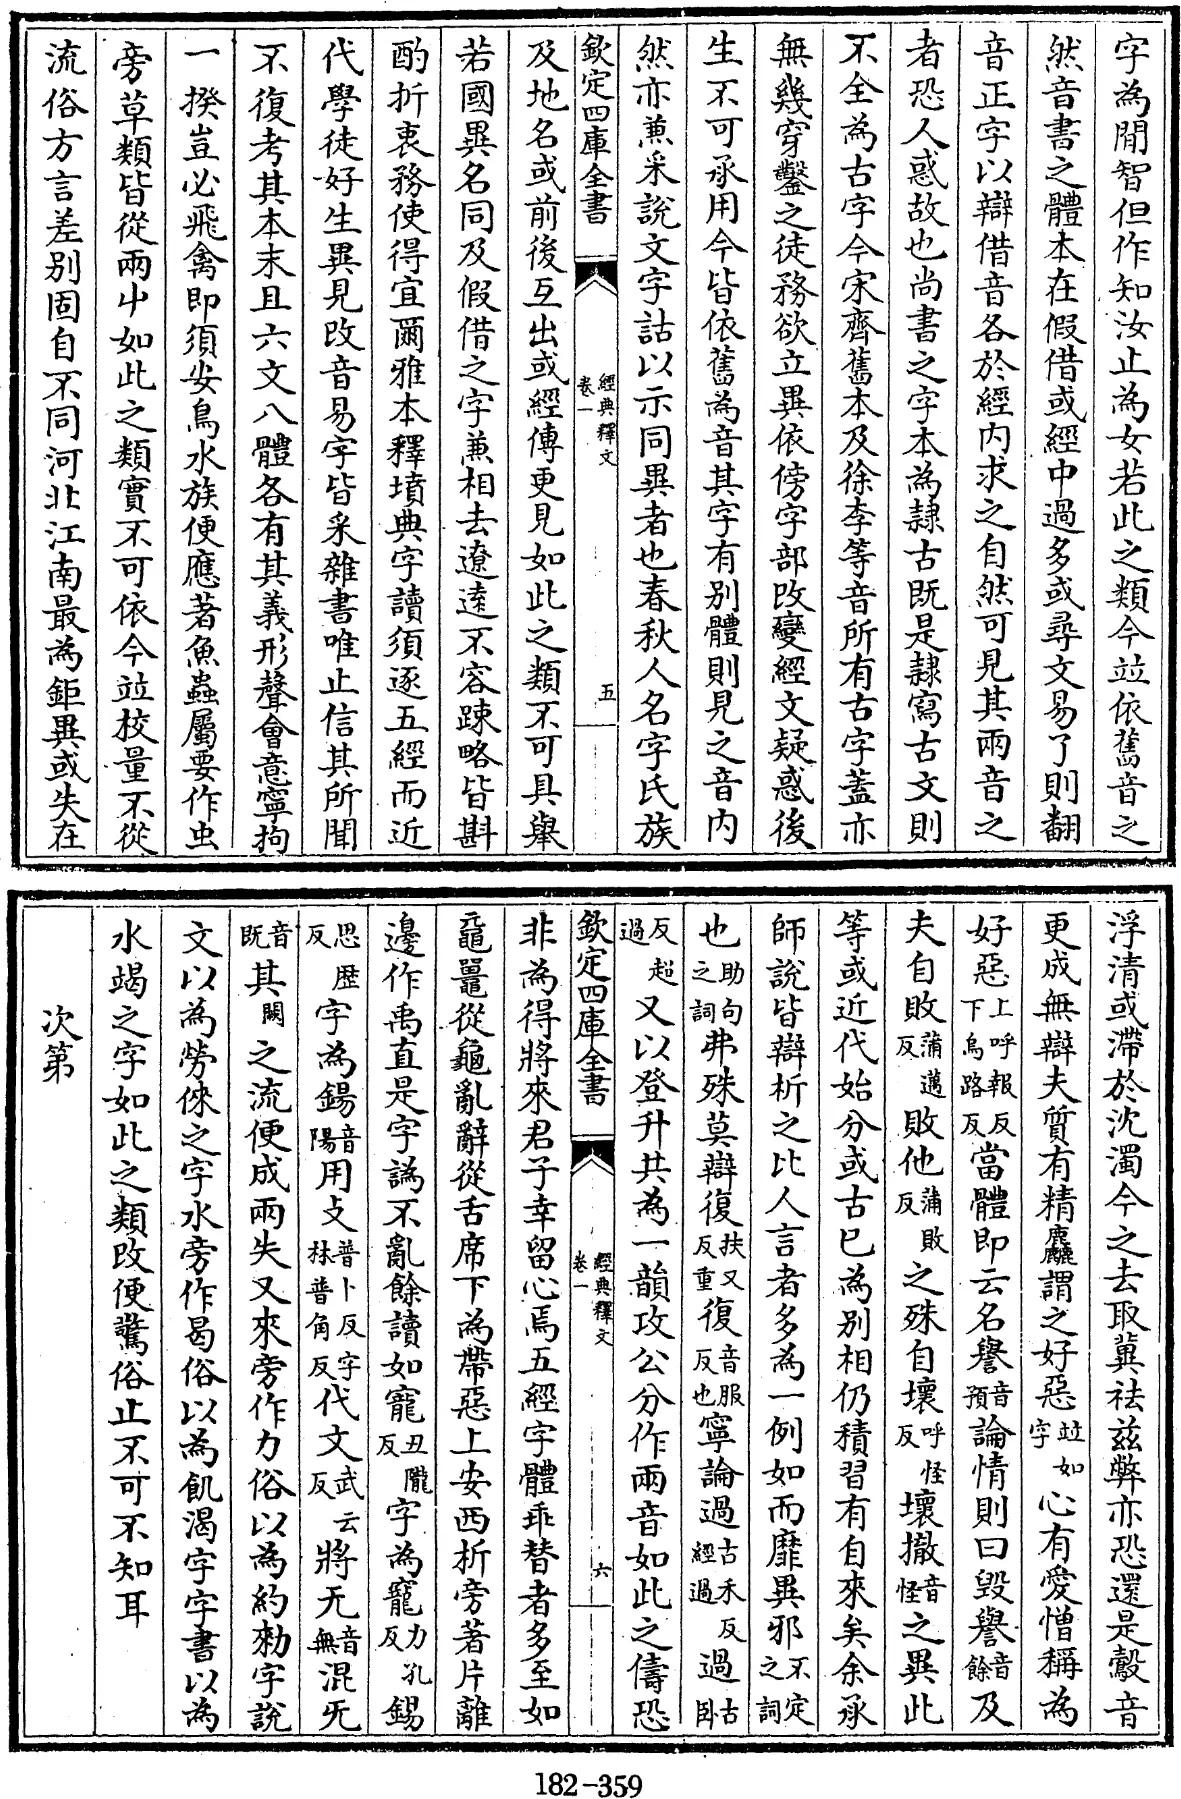 字為閒智但作知汝止為女若此之類今竝依舊音之
然音書之體本在假借或經中過多或尋文易了則翻
音正字以辯借音各於經內求之自然可見其兩音之
者恐人惑故也尚書之字本為隷古既是隷寫古文則
不全為古字今宋齊舊本及徐李等音所有古字蓋亦
無幾穿鑿之徒務欲立異依傍字部改變經文疑惑後
生不可承用今皆依舊為音其字有別體則見之音內
然亦兼采說文字詁以示同異者也春秋人名字氏族
欽定四庫全書
經典釋文
卷一
五
及地名或前後互出或經傳更見如此之類不可具舉
若國異名同及假借之字兼相去遼遠不容踈略皆斟
酌折衷務使得宜爾雅本釋墳典字讀須逐五經而近
代學徒好生異見改音易字皆采雜書唯止信其所聞
不復考其本末且六文八體各有其義形聲會意寧拘
一揆豈必飛禽即須安鳥水族便應著魚蟲屬要作虫
旁草類皆從兩屮如此之類實不可依今竝校量不從
流俗方言差別固自不同河北江南最為鉅異或失在
浮清或滯於沈濁今之去取冀祛兹弊亦恐還是鷇音
更成無辯夫質有精麤謂之好惡竝如字心有愛憎稱為
好惡上呼報反下烏路反當體即云名譽音預論情則曰毀譽音餘及
夫自敗蒲邁反敗他蒲敗反之殊自壞呼怪反壞撤音怪之異此
等或近代始分或古已為別相仍積習有自來矣余承
師說皆辯析之比人言者多為一例如而靡異邪不定之詞
也助句之詞弗殊莫辯復扶又反重復音服反也寧論過古禾反經過過古臥
反超過又以登升共為一韻攻公分作兩音如此之儔恐
欽定四庫全書
經典釋文
卷一
六
非為得將來君子幸留心焉五經字體乖替者多至如
黿鼉從龜亂辭從舌席下為帶惡上安西析旁著片離
邊作禹直是字譌不亂餘讀如寵丑隴反字為寵力孔反錫
思歷反字為鍚音陽用攴普卜反字林普角反代文武云反將无音無混旡
音既其闗之流便成兩失又來旁作力俗以為約勑字說
文以為勞倈之字水旁作曷俗以為飢渴字字書以為
水竭之字如此之類改便驚俗止不可不知耳
次第
182-359